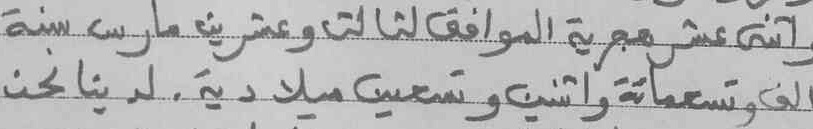 واثنى عشر هجرية الموافق لثالث وعشرين مارس سنة
الف وتسعمائة واثنين وتسعين ميلادية. لدينا نحن